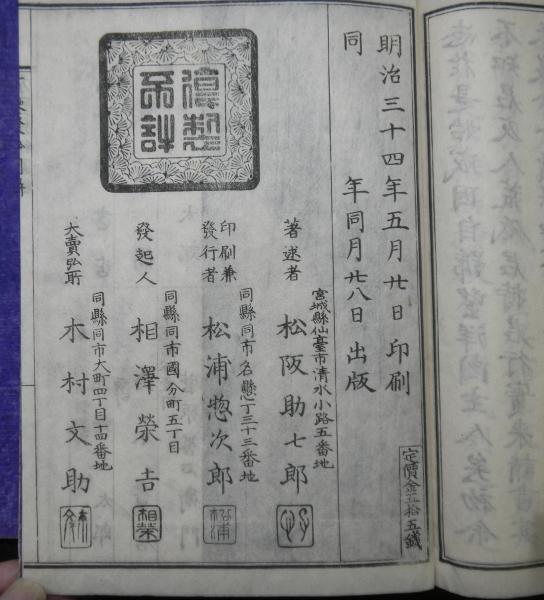 明治三十四年五月廿日印刷
同年同月廿八日出版
定價金五拾五錢
宮城縣仙臺市清水小路五番地
著述者 松阪助七郎
同縣同市名懸丁三十三番地
印刷兼發行者 松浦惣次郎
松浦
同縣同市國分町五丁目
發起人 相澤榮吉
相榮
同縣同市大町四丁目十四番地
大賣弘所 木村文助
復製
不許